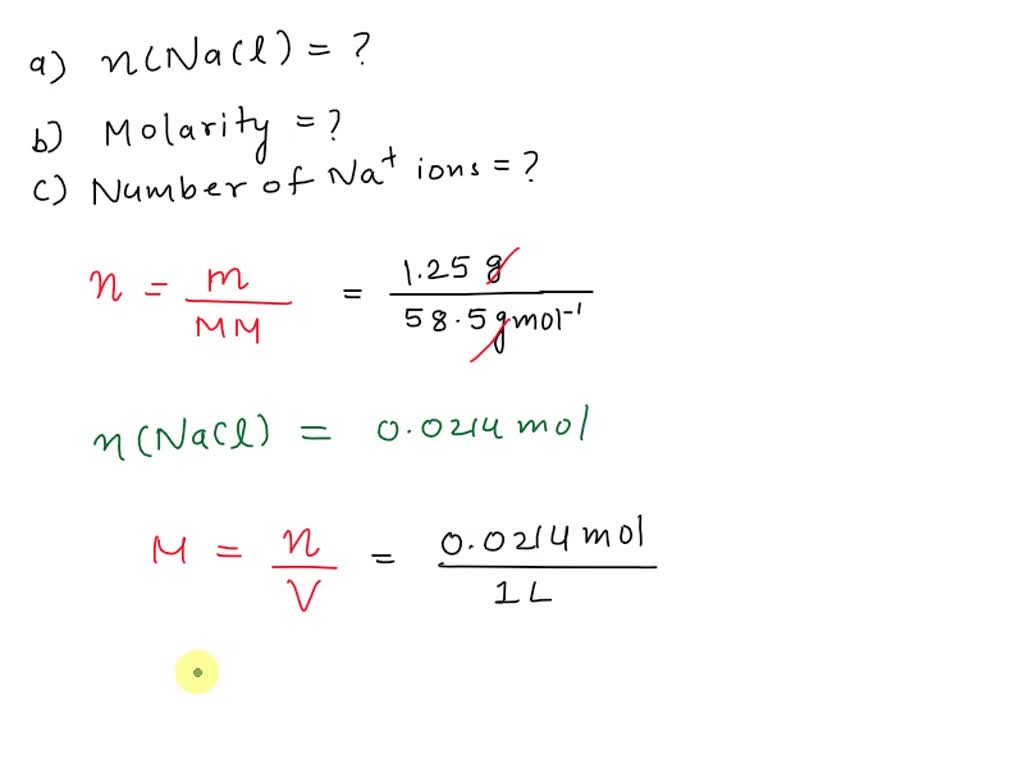 a) n(NaCl) = ?
b) Molarity = ?
c) Number of Na⁺ ions = ?
n = m / MM = 1.25 g / 58.5 g mol⁻¹
n(NaCl) = 0.0214 mol
M = n / V = 0.0214 mol / 1 L